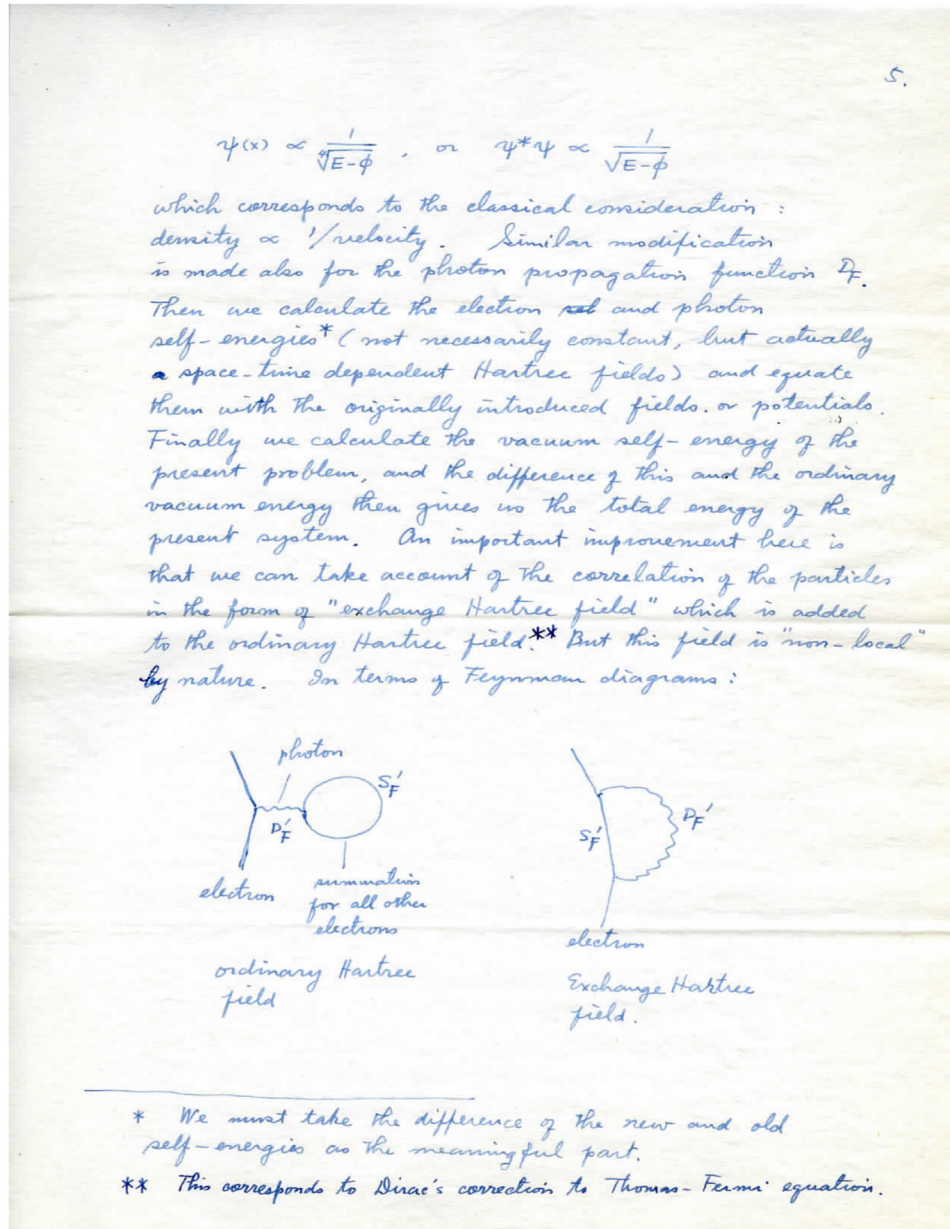 5.
ψ(x) ∝ 1/∜(E-φ) , or ψ*ψ ∝ 1/√(E-φ)
which corresponds to the classical consideration :
density ∝ 1/velocity. Similar modification
is made also for the photon propagation function D_F.
Then we calculate the electron and photon
self-energies* (not necessarily constant, but actually
space-time dependent Hartree fields) and equate
them with the originally introduced fields. or potentials.
Finally we calculate the vacuum self-energy of the
present problem, and the difference of this and the ordinary
vacuum energy then gives us the total energy of the
present system. An important improvement here is
that we can take account of the correlation of the particles
in the form of "exchange Hartree field" which is added
to the ordinary Hartree field.** But this field is "non-local"
by nature. In terms of Feynman diagrams :
photon
S_F'
D_F'
electron
summation
for all other
electrons
ordinary Hartree
field
S_F'
D_F'
electron
Exchange Hartree
field.
* We must take the difference of the new and old
self-energies as the meaningful part.
** This corresponds to Dirac's correction to Thomas-Fermi equation.